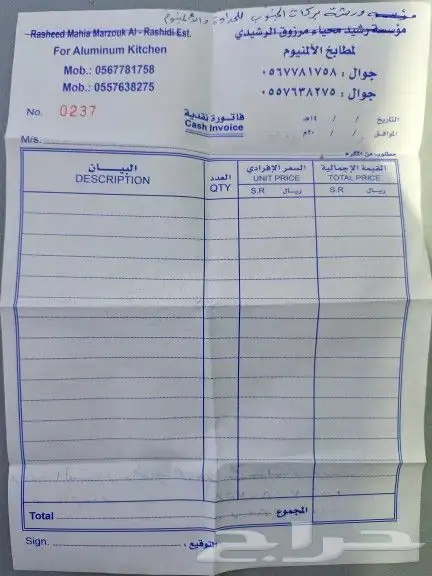 مؤسسه ورشة بركات الجنوب للحدادة والألمنيوم
Rasheed Mahia Marzouk Al - Rashidi Est.
مؤسسة رشيد محياء مرزوق الرشيدي
For Aluminum Kitchen
لمطابخ الألمنيوم
Mob.: 0567781758
جوال : ٠٥٦٧٧٨١٧٥٨
Mob.: 0557638275
جوال : ٠٥٥٧٦٣٨٢٧٥
No. 0237
فاتورة نقدية
Cash Invoice
التاريخ / / ١٤هـ
الموافق / / ٢٠م
M/s.
مطلوب من المكرم
البيـــان
DESCRIPTION
العدد
QTY
السعر الإفرادي
UNIT PRICE
S.R ريـال
القيمة الإجمالية
TOTAL PRICE
S.R ريـال
Total المجموع
Sign. التوقيع
حراج